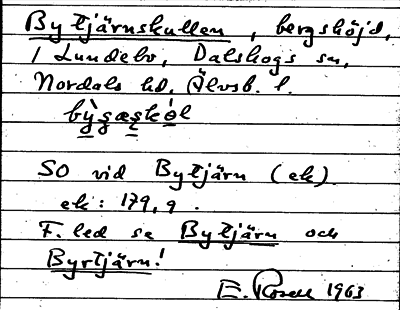 Bytjärnskullen, bergshöjd,
i Lundebo, Dalskogs sn,
Nordals hd, Älvsb. l.
SO vid Bytjärn (ek)
ek: 179, 9.
F. led se Bytjärn och
Byrtjärn!
E. Rosell 1963